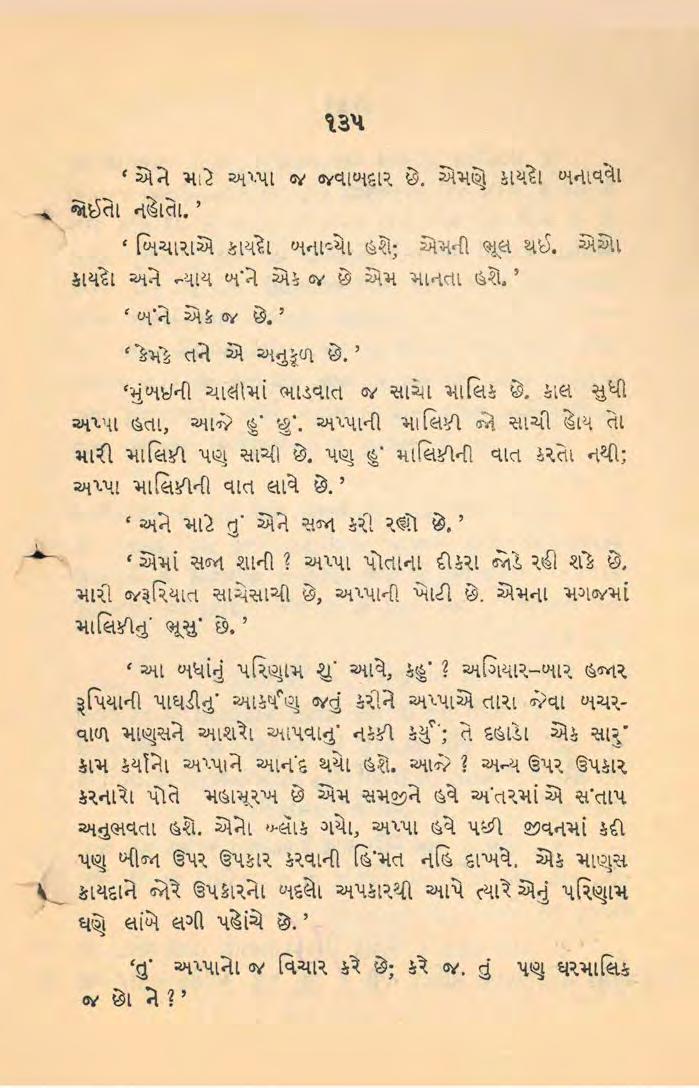 ૧૩૫
‘ એને માટે અપ્પા જ જવાબદાર છે. એમણે કાયદો બનાવવો
જોઈતો નહોતો. ’
‘ બિચારાએ કાયદો બનાવ્યો હશે; એમની ભૂલ થઈ. એઓ
કાયદો અને ન્યાય બંને એક જ છે એમ માનતા હશે. ’
‘ બંને એક જ છે. ’
‘ કેમકે તને એ અનુકૂળ છે. ’
‘મુંબઇની ચાલીમાં ભાડવાત જ સાચો માલિક છે. કાલ સુધી
અપ્પા હતા, આજે હું છું. અપ્પાની માલિકી જો સાચી હોય તો
મારી માલિકી પણ સાચી છે. પણ હું માલિકીની વાત કરતો નથી;
અપ્પા માલિકીની વાત લાવે છે. ’
‘ અને માટે તું એને સજા કરી રહ્યો છે. ’
‘ એમાં સજા શાની ? અપ્પા પોતાના દીકરા જોડે રહી શકે છે.
મારી જરૂરિયાત સાચેસાચી છે, અપ્પાની ખોટી છે. એમના મગજમાં
માલિકીનું ભૂસું છે. ’
‘ આ બધાંનું પરિણામ શું આવે, કહું ? અગિયાર–બાર હજાર
રૂપિયાની પાઘડીનું આકર્ષણ જતું કરીને અપ્પાએ તારા જેવા બચર-
વાળ માણસને આશરો આપવાનું નક્કી કર્યું; તે દહાડે એક સારું
કામ કર્યાનો અપ્પાને આનંદ થયો હશે. આજે ? અન્ય ઉપર ઉપકાર
કરનારો પોતે મહામૂરખ છે એમ સમજીને હવે અંતરમાં એ સંતાપ
અનુભવતા હશે. એનો બ્લૉક ગયો, અપ્પા હવે પછી જીવનમાં કદી
પણ બીજા ઉપર ઉપકાર કરવાની હિંમત નહિ દાખવે. એક માણસ
કાયદાને જોરે ઉપકારનો બદલો અપકારથી આપે ત્યારે એનું પરિણામ
ઘણે લાંબે લગી પહોંચે છે. ’
‘તું અપ્પાનો જ વિચાર કરે છે; કરે જ. તું પણ ઘરમાલિક
જ છો ને ?’